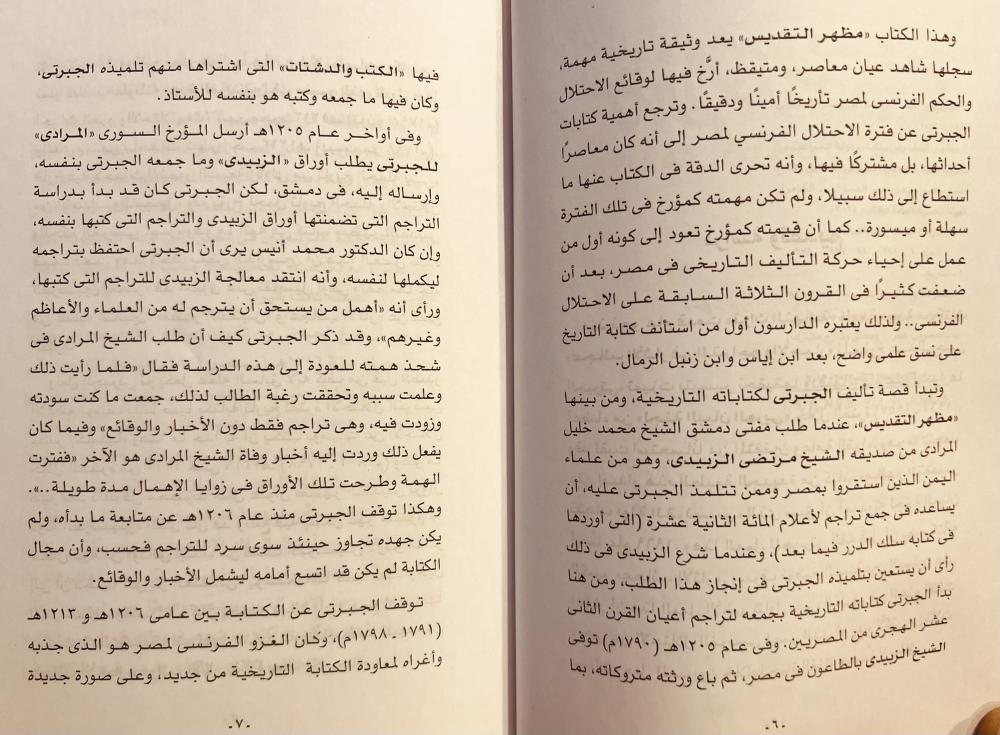 وهذا الكتاب «مظهر التقديس» يعد وثيقة تاريخية مهمة،
سجلها شاهد عيان معاصر، ومتيقظ، أرَّخ فيها لوقائع الاحتلال
والحكم الفرنسى لمصر تأريخًا أمينًا ودقيقًا. وترجع أهمية كتابات
الجبرتى عن فترة الاحتلال الفرنسي لمصر إلى أنه كان معاصرًا
أحداثها، بل مشتركًا فيها، وأنه تحرى الدقة فى الكتاب عنها ما
استطاع إلى ذلك سبيلا، ولم تكن مهمته كمؤرخ فى تلك الفترة
سهلة أو ميسورة.. كما أن قيمته كمؤرخ تعود إلى كونه أول من
عمل على إحياء حركة التأليف التاريخى فى مصر، بعد أن
ضعفت كثيرًا فى القرون الثلاثة السابقة على الاحتلال
الفرنسى.. ولذلك يعتبره الدارسون أول من استأنف كتابة التاريخ
على نسق علمى واضح، بعد ابن إياس وابن زنبل الرمال.
وتبدأ قصة تأليف الجبرتى لكتاباته التاريخية، ومن بينها
«مظهر التقديس»، عندما طلب مفتى دمشق الشيخ محمد خليل
المرادى من صديقه الشيخ مرتضى الزبيدى، وهو من علماء
اليمن الذين استقروا بمصر وممن تتلمذ الجبرتى عليه، أن
يساعده فى جمع تراجم لأعلام المائة الثانية عشرة (التى أوردها
فى كتابه سلك الدرر فيما بعد)، وعندما شرع الزبيدى فى ذلك
رأى أن يستعين بتلميذه الجبرتى فى إنجاز هذا الطلب، ومن هنا
بدأ الجبرتى كتاباته التاريخية بجمعه لتراجم أعيان القرن الثانى
عشر الهجرى من المصريين. وفى عام ١٢٠٥هـ (١٧٩٠م) توفى
الشيخ الزبيدى بالطاعون فى مصر، ثم باع ورثته متروكاته، بما
ـ ٦ ـ
فيها «الكتب والدشتات» التى اشتراها منهم تلميذه الجبرتى،
وكان فيها ما جمعه وكتبه هو بنفسه للأستاذ.
وفى أواخر عام ١٢٠٥هـ أرسل المؤرخ السورى «المرادى»
للجبرتى يطلب أوراق «الزبيدى» وما جمعه الجبرتى بنفسه،
وإرساله إليه، فى دمشق، لكن الجبرتى كان قد بدأ بدراسة
التراجم التى تضمنتها أوراق الزبيدى والتراجم التى كتبها بنفسه،
وإن كان الدكتور محمد أنيس يرى أن الجبرتى احتفظ بتراجمه
ليكملها لنفسه، وأنه انتقد معالجة الزبيدى للتراجم التى كتبها،
ورأى أنه «أهمل من يستحق أن يترجم له من العلماء والأعاظم
وغيرهم»، وقد ذكر الجبرتى كيف أن طلب الشيخ المرادى فى
شحذ همته للعودة إلى هذه الدراسة فقال «فلما رأيت ذلك
وعلمت سببه وتحققت رغبة الطالب لذلك، جمعت ما كنت سودته
وزودت فيه، وهى تراجم فقط دون الأخبار والوقائع» وفيما كان
يفعل ذلك وردت إليه أخبار وفاة الشيخ المرادى هو الآخر «ففترت
الهمة وطرحت تلك الأوراق فى زوايا الإهمال مدة طويلة..».
وهكذا توقف الجبرتى منذ عام ١٢٠٦هـ عن متابعة ما بدأه، ولم
يكن جهده تجاوز حينئذ سوى سرد للتراجم فحسب، وأن مجال
الكتابة لم يكن قد اتسع أمامه ليشمل الأخبار والوقائع.
توقف الجبرتى عن الكتابة بين عامى ١٢٠٦هـ و ١٢١٣هـ
(١٧٩١ ـ ١٧٩٨م)، وكان الغزو الفرنسى لمصر هو الذى جذبه
وأغراه لمعاودة الكتابة التاريخية من جديد، وعلى صورة جديدة
ـ ٧ ـ